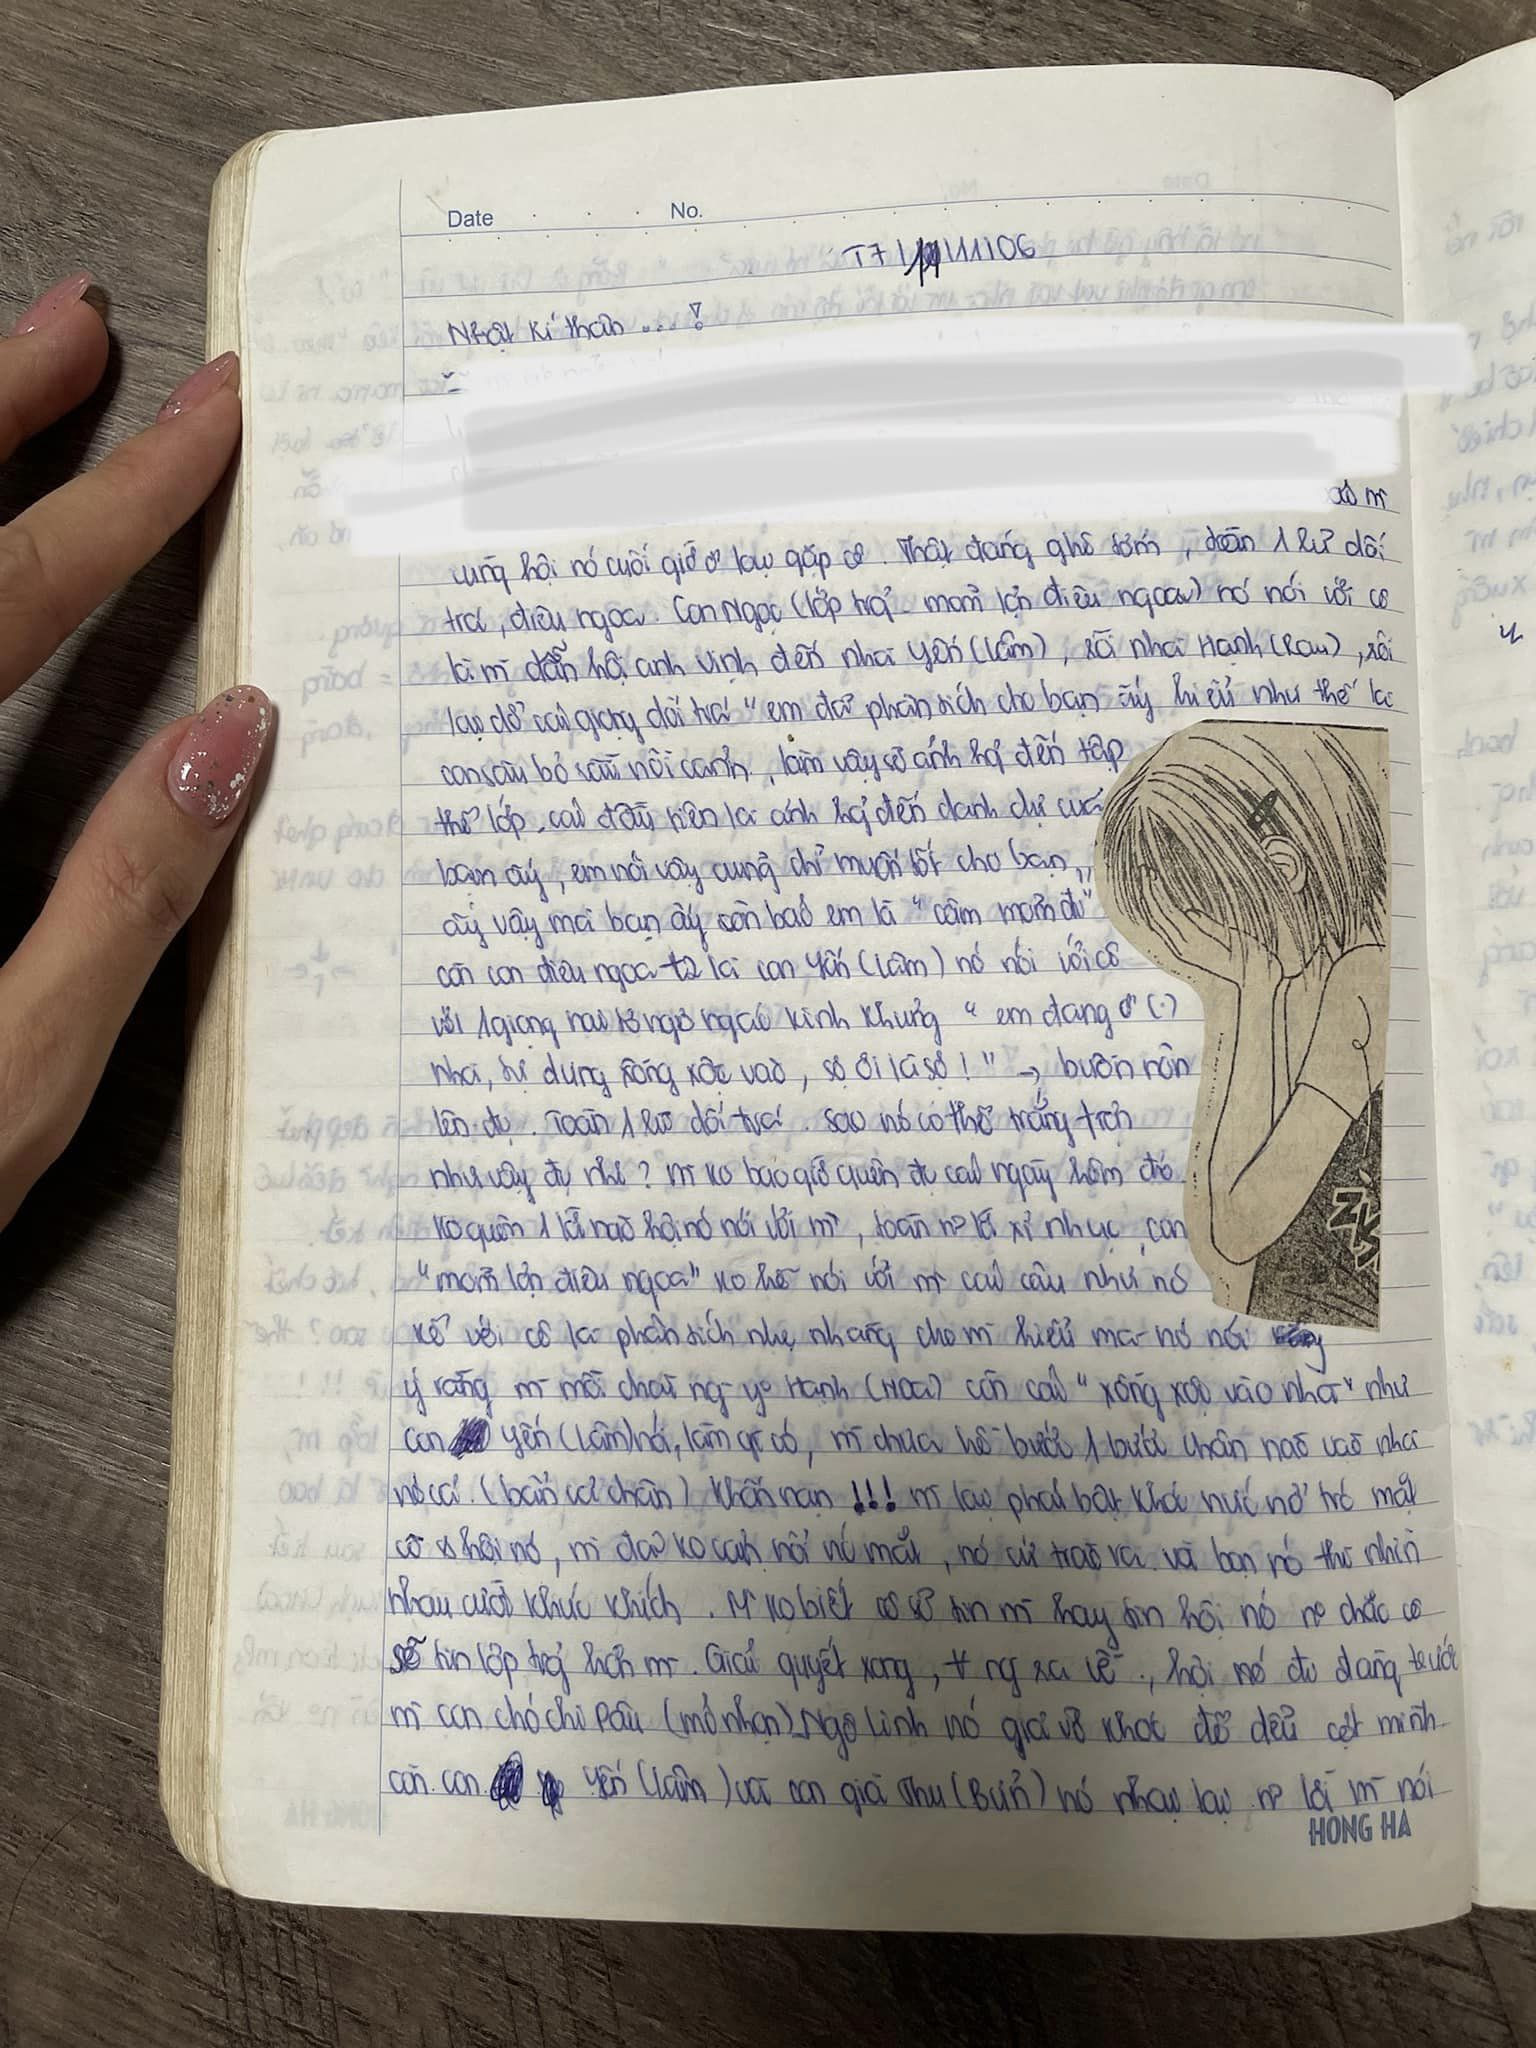 Date No.
T7 11/11/06
Nhật kí thân ...!
m
cùng hội nó cuối giờ ở lại gặp cô. Thật đáng ghê tởm, toàn 1 lũ dối
trá, điêu ngoa. Con Ngọc (lớp trg - mõm lợn điêu ngoa) nó nói với cô
là m dẫn hội anh Vinh đến nhà Yến (Lâm), rồi nhà Hạnh (Rau), rồi
lại dở cái giọng dối trá "em đã phân tích cho bạn ấy hiểu như thế là
con sâu bỏ rầu nồi canh, làm vậy sẽ ảnh hg đến tập
thể lớp, cái đầu tiên là ảnh hg đến danh dự của
bạn ấy, em nói vậy cũng chỉ muốn tốt cho bạn
ấy vậy mà bạn ấy còn bảo em là "câm mõm đi"
còn con điêu ngoa t2 là con Yến (Lâm) nó nói với cô
với 1 giọng nai tơ ngơ ngác kinh khủng "em đang ở (.)
nhà, tự dưng xông xộc vào, sợ ơi là sợ!" → buồn nôn
lên đc. Toàn 1 lũ dối trá. Sao nó có thể trắng trợn
như vậy đc nhỉ? M ko bao giờ quên đc cái ngày hôm đó
ko quên 1 lời nào hội nó nói với m, toàn n~ lời xỉ nhục, con
"mõm lợn điêu ngoa" ko hề nói với m cái câu như nó
kể với cô là phân tích nhẹ nhàng cho m hiểu mà nó nói
ý rằng m mồi chài ng yo Hạnh (Hoa) còn cái "xông xộc vào nhà" như
con Yến (Lâm) nói, làm gì có, m chưa hề bước 1 bước chân nào vào nhà
nó cả. (bẩn cả chân) Khốn nạn !!! m lại phải bật khóc nức nở trc mặt
cô & hội nó, m đã ko cầm nổi nc mắt, nó cứ trào ra và bọn nó thì nhìn
nhau cười khúc khích. M ko biết cô sẽ tin m hay tin hội nó n~ chắc cô
sẽ tin lớp trg hơn m. Giải quyết xong, t ng ra về, hội nó đi đằng trước
m con chó chi Pâu (mỏ nhọn) Ngọ Linh nó giả vờ khóc để đểu cợt mình
còn con Yến (Lâm) và con già Thu (Bủn) nó nhại lại n~ lời m nói
HONG HA